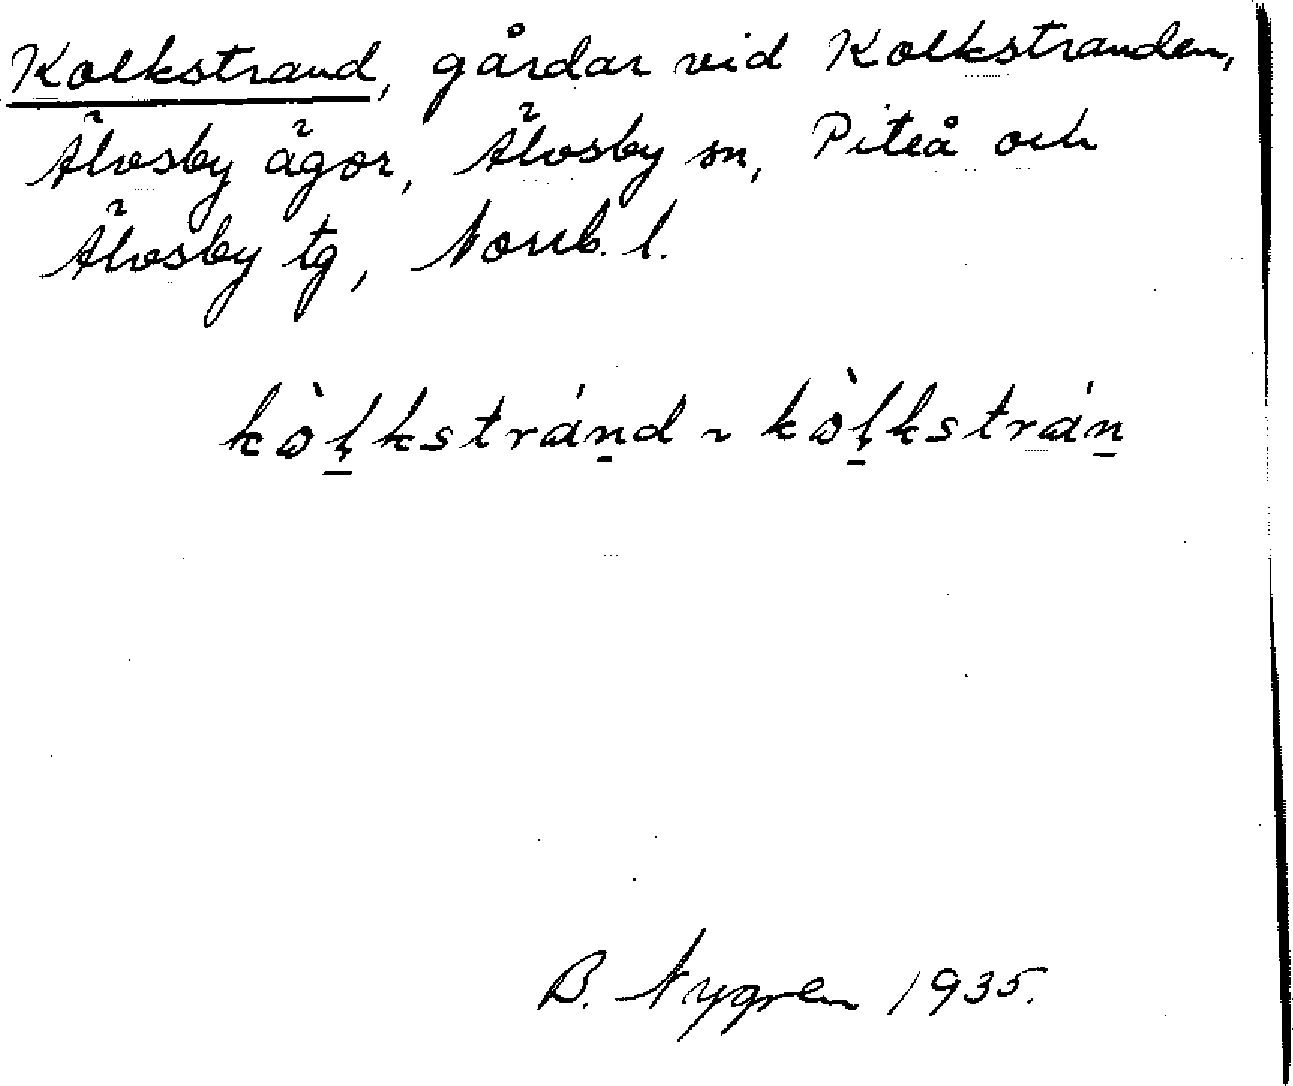 Kolkstrand, gårdar vid Kolkstranden,
Älvsby ägor, Älvsby sn, Piteå och
Älvsby tg, Norrb. l.
kòl̥kstránd ~ kòl̥kstrán
B. Nygren 1935.